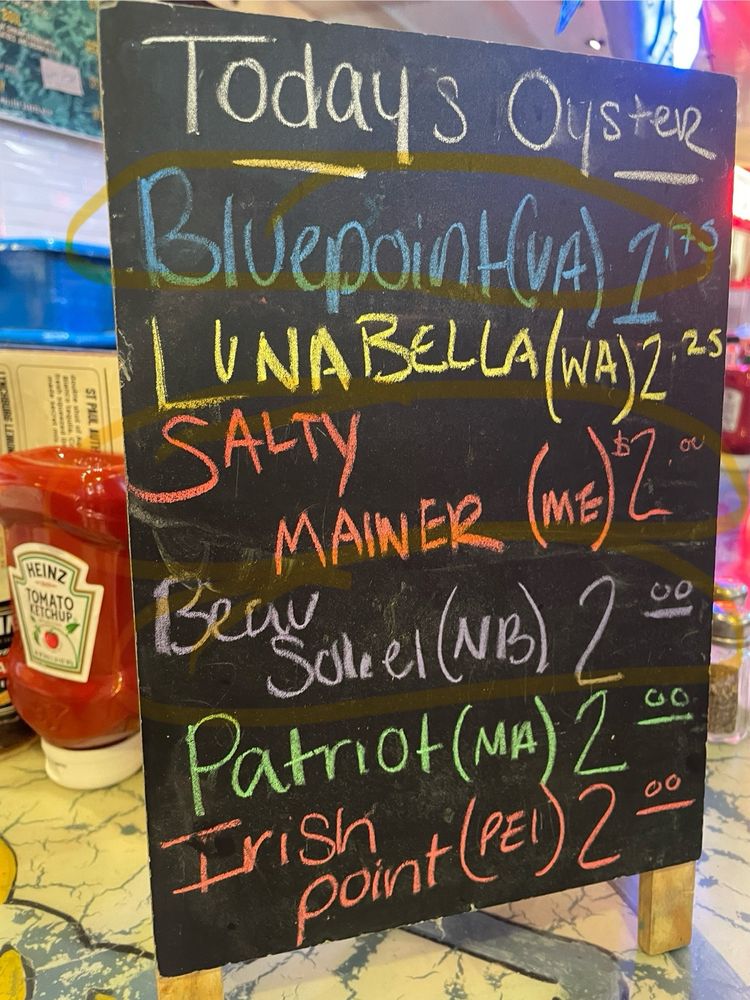 Todays Oyster
Bluepoint (VA) 1.75
LUNABELLA (WA) 2.25
SALTY
MAINER (ME) $2.00
Beau
Soliel (NB) 2 00
Patriot (MA) 2 00
Irish
point (PEI) 2 00
HEINZ
TOMATO
KETCHUP
ST PAUL